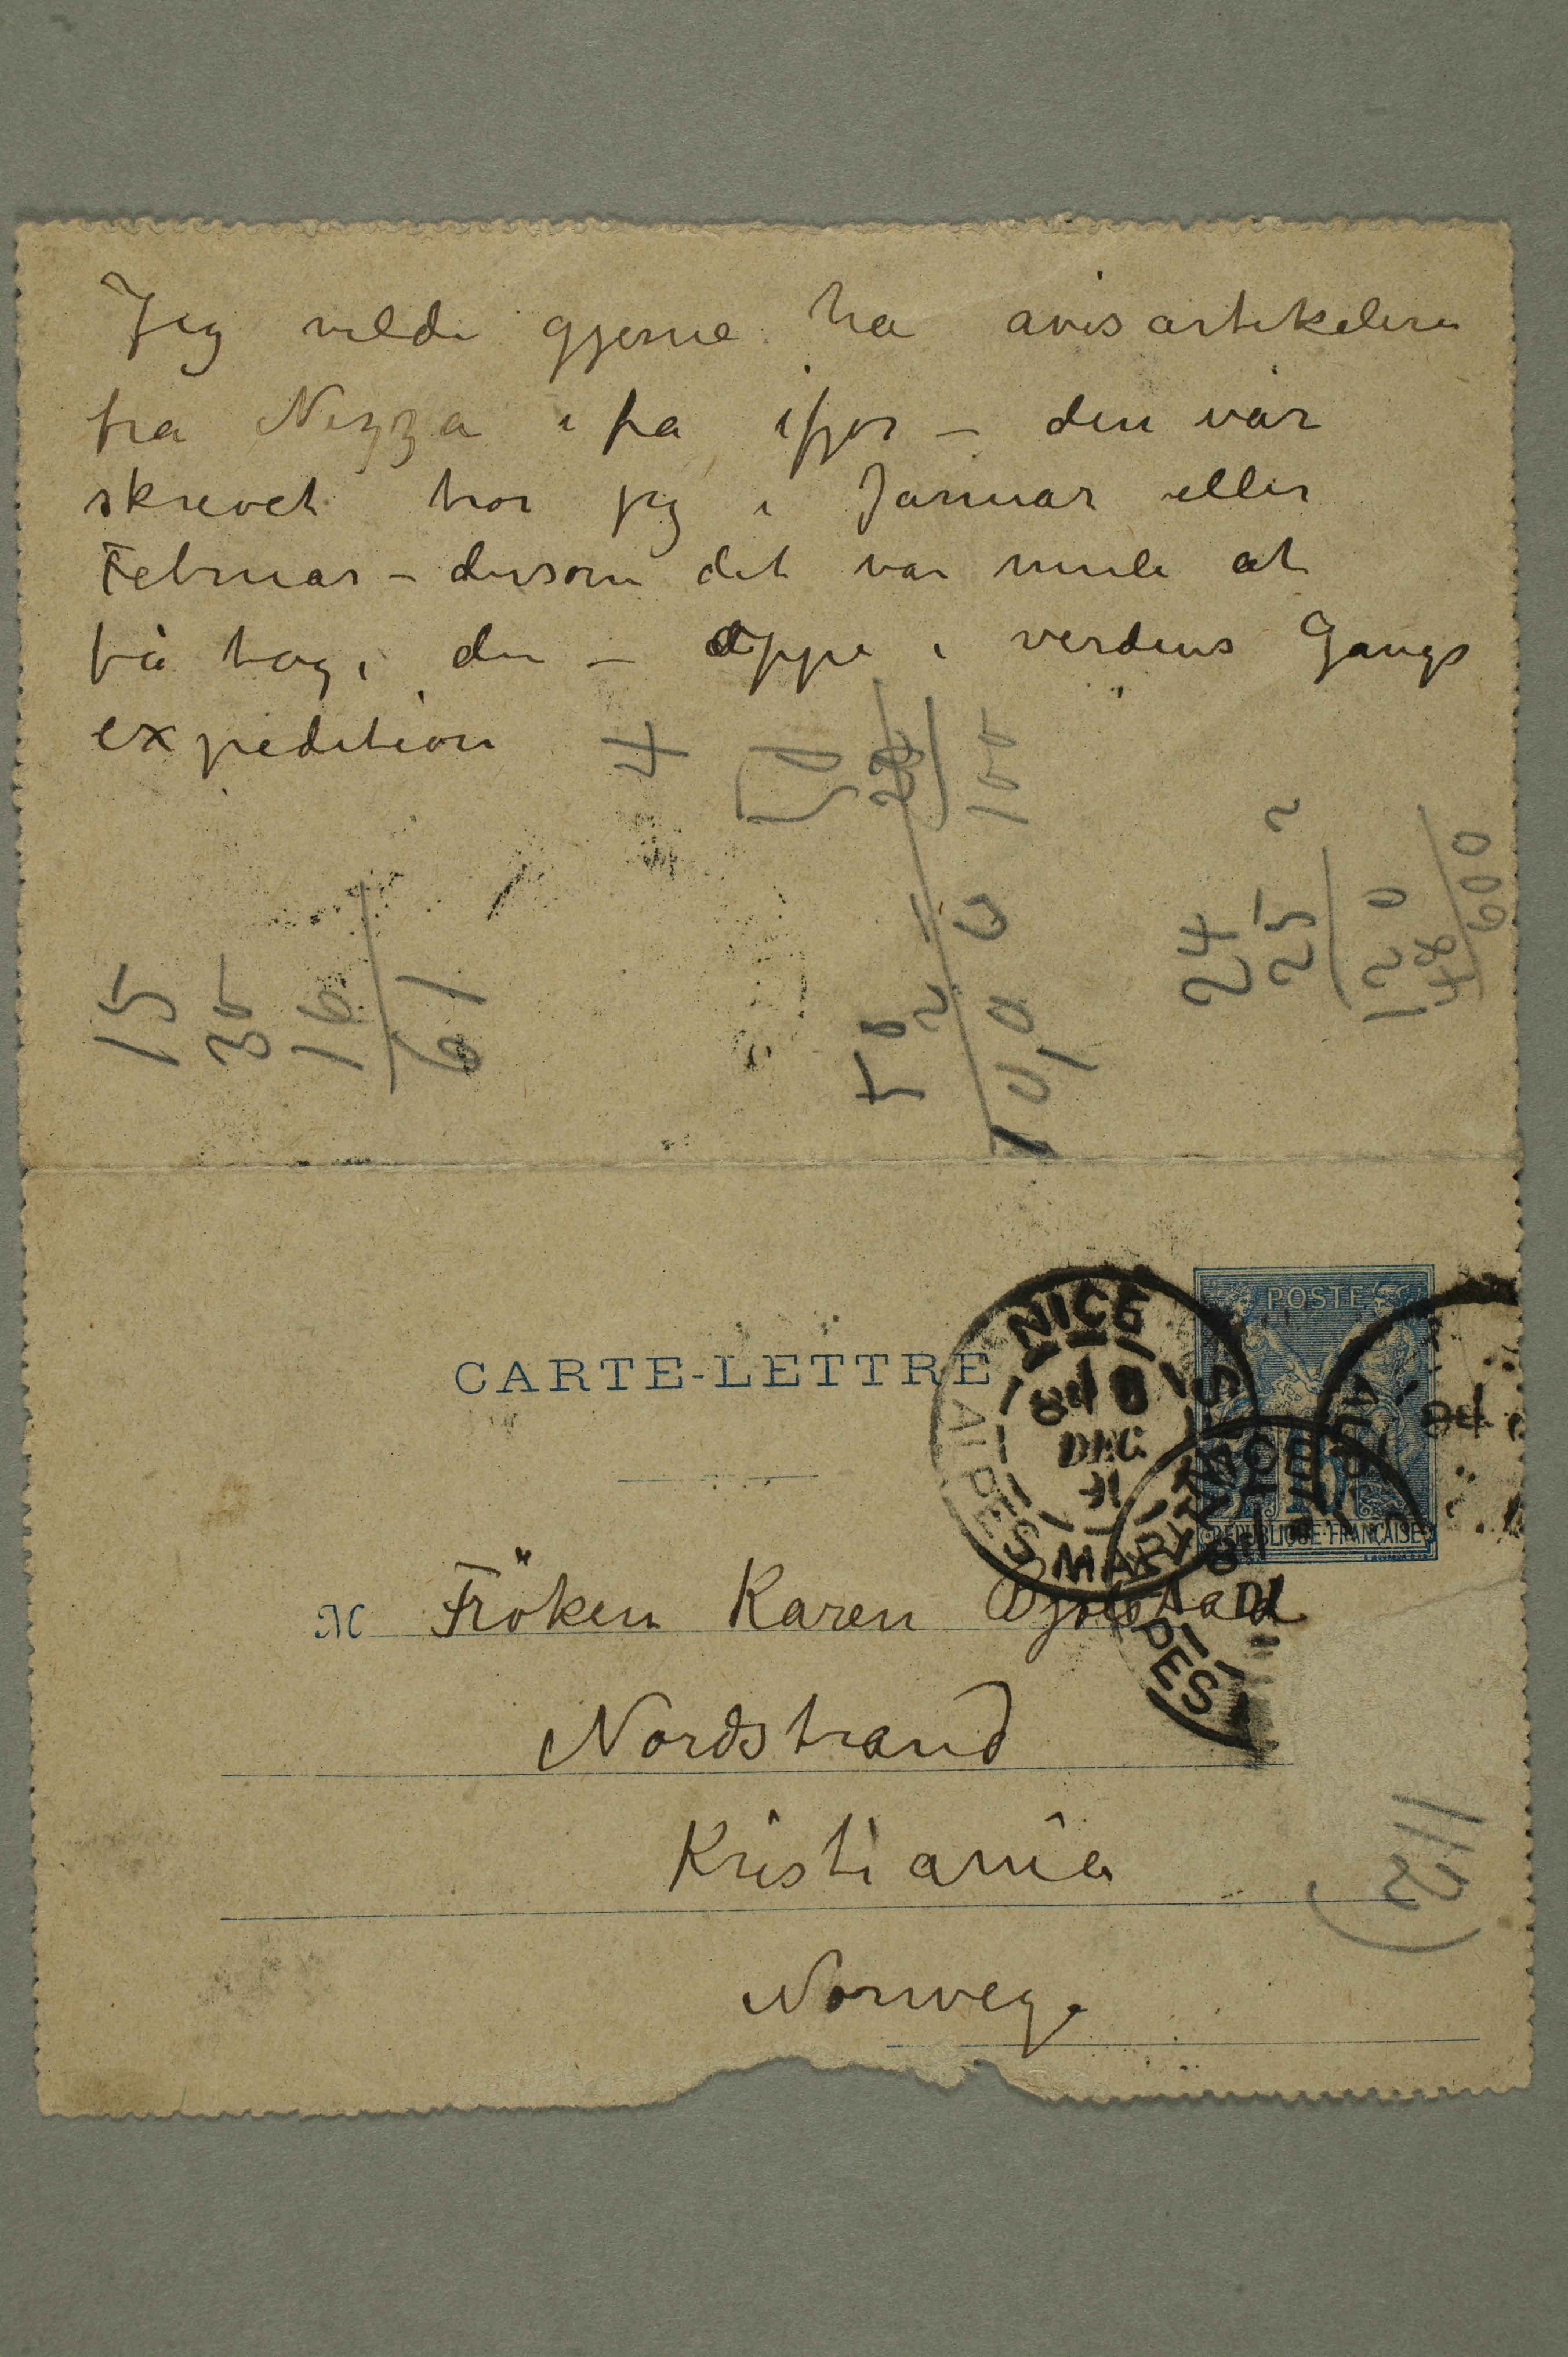 Jeg vilde gjerne ha avisartikelen
fra Nizza i fra ifjor – den var
skrevet tror jeg i Januar eller
Februar – dersom det var mule at
få tag i den – oppe i verdens Gangs
expedition
4
100
15
35
16
61
24
25
2
120
48
600
CARTE-LETTRE
NICE
ALPES MARITIMES
DEC
91
POSTE
REPUBLIQUE FRANÇAISE
M Fröken Karen Bjölstad
Nordstrand
Kristiania
Norwege